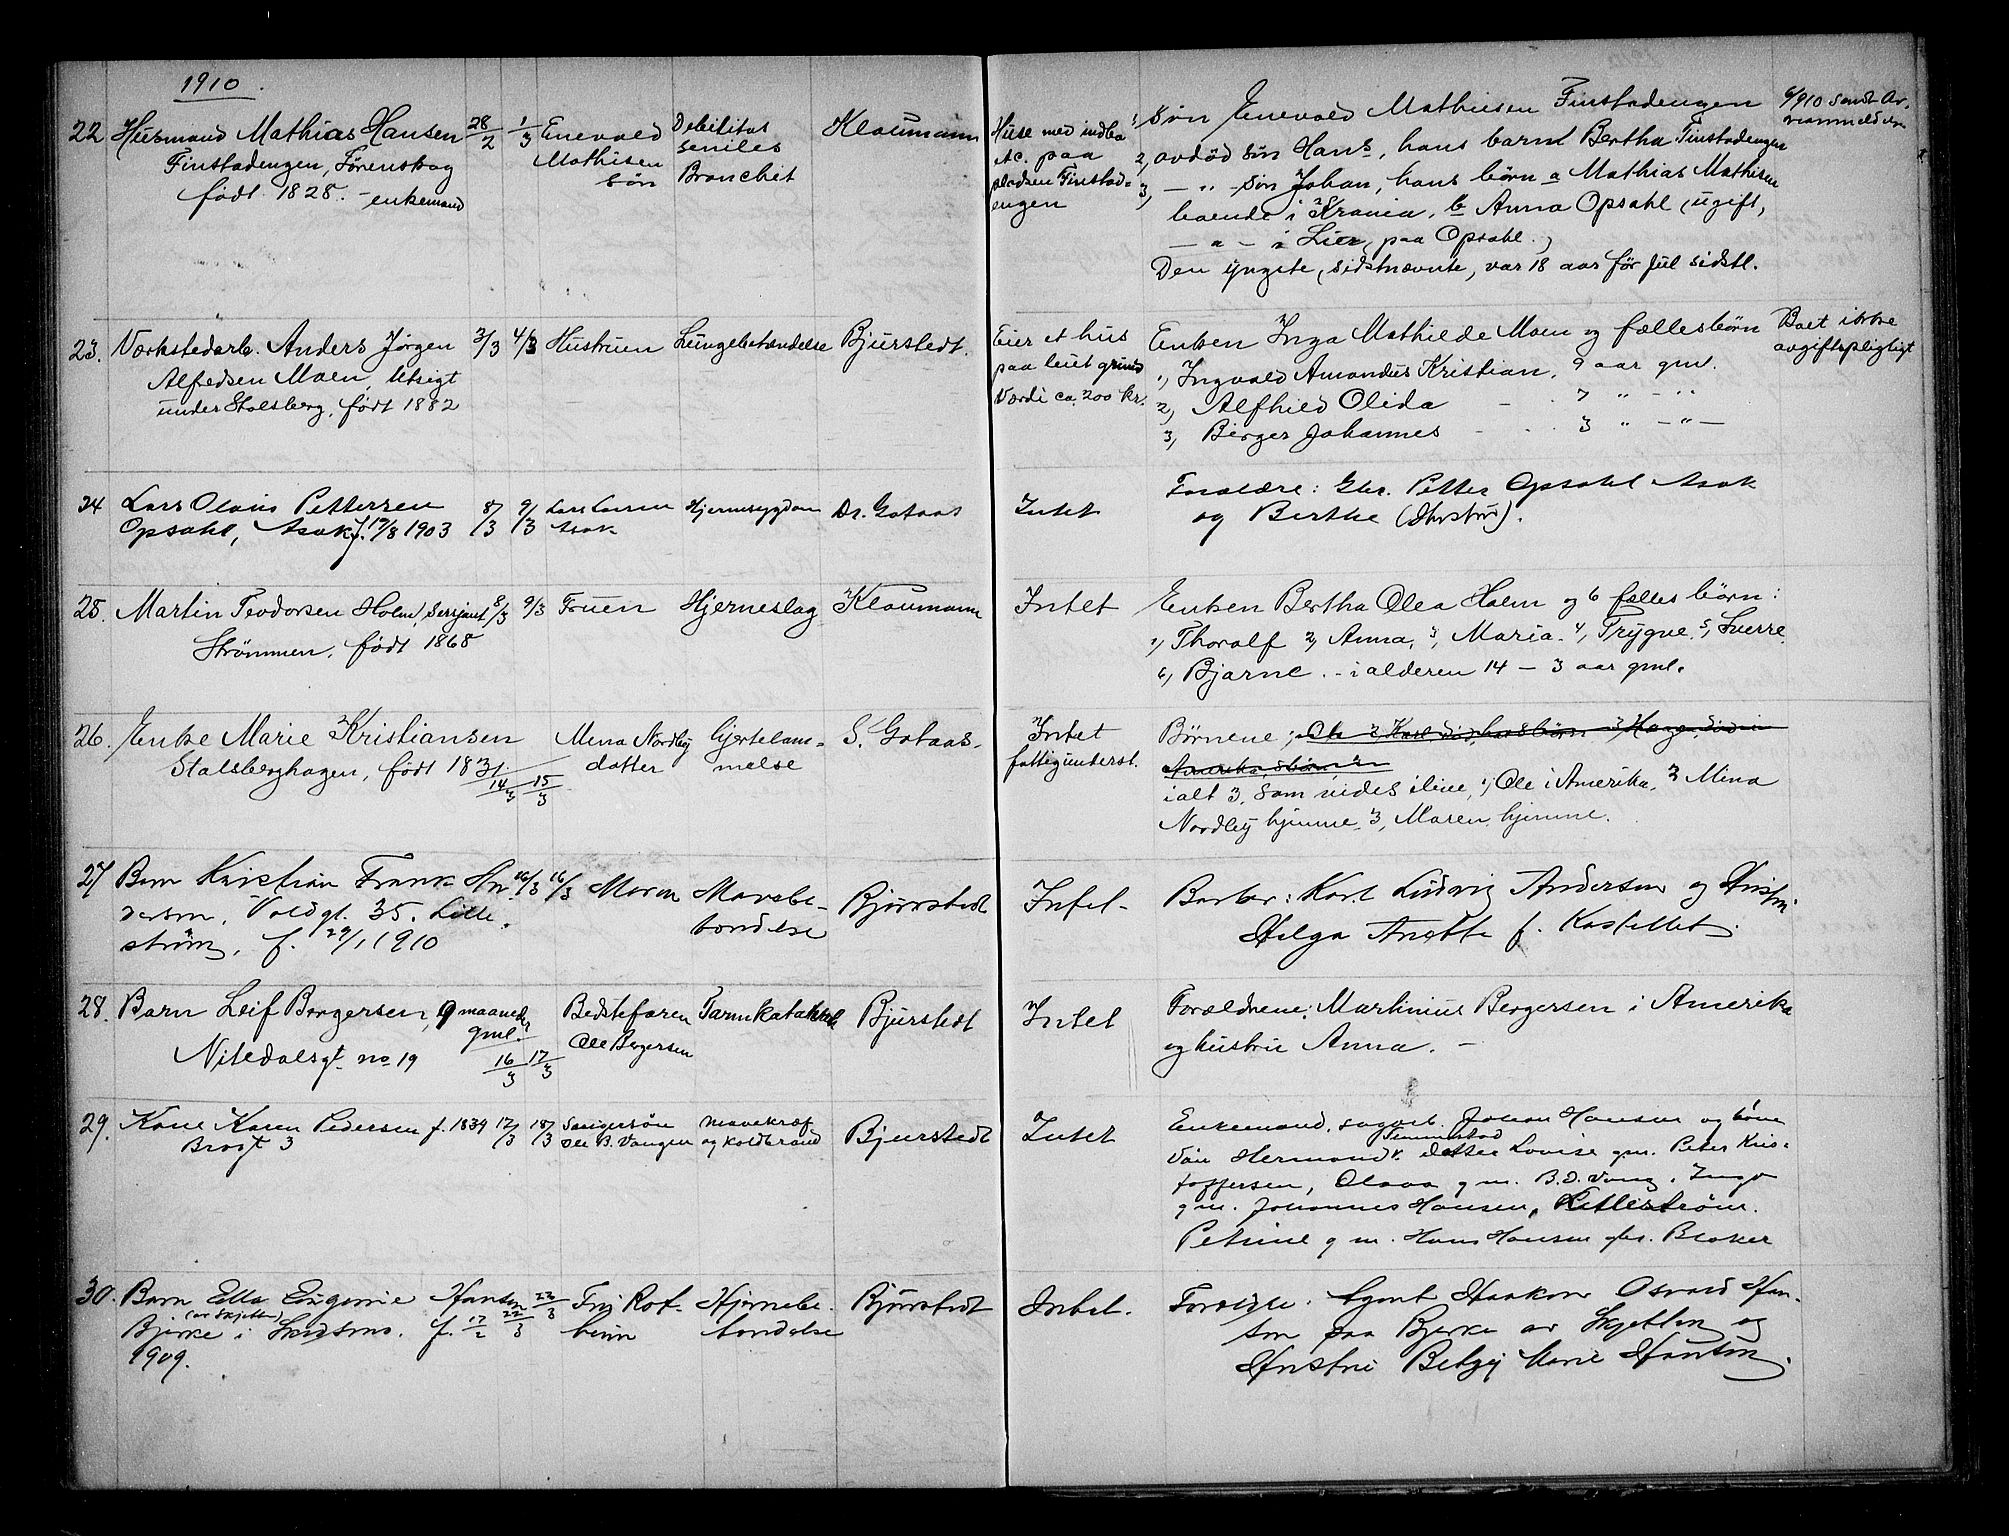 1910
22 Husmand Mathias Hansen 28/2 1/3 Enevald Debilitas Klaumann
Finstadengen, Lørenskog Mathisen seniles
født 1828. - enkemand søn Bronchit
Huse med indbo
paa
pladsen Finstad-
engen
1, Søn Enevald Mathisen Finstadengen
2, avdød søn Hans, hans barn Bertha Finstadengen
3, — " — søn Johan, hans børn a Mathias Mathisen
boende i Krania, b Anna Opsahl (ugift,
— " — i Lier, paa Opsahl.)
Den yngste, sidstnævnte, var 18 aar før jul sidstl.
23. Værkstedarb. Anders Jørgen 3/3 4/3 Hustruen Lungebetændelse Bjurstedt.
Alfedsen Moen, Utsigt
under Stalsberg, født 1882
Eier et hus
paa leiet grund
Værdi ca. 200 kr.
Enken Inga Mathilde Moen og fællesbørn
1, Ingvald Amandus Kristian, 9 aar gml.
2, Alfhild Olida - 7 " - "
3, Birger Johannes - 3 " - " -
Boet ikke
avgiftspligtigt
24 Lars Olaus Pettersen 8/3 9/3 Lars Larsen Hjernesygdom Dr. Gotaas
Opsahl, Asak f. 17/8 1903 Asak
Intet
Forældre: Gbr. Petter Opsahl Asak
og Berthe (Hustru).
25. Martin Teodorsen Holm, Sersjant 8/3 9/3 Fruen Hjerneslag Klaumann
Strømmen, født 1868
Intet
Enken Bertha Olea Holm og 6 fælles børn:
1, Thoralf 2, Anna, 3, Maria. 4, Trygve, 5, Sverre
6, Bjarne. - i alderen 14 — 3 aar gml.
26. Enke Marie Kristiansen Mina Nordby hjertelam- S. Gotaas.
Stalsberghagen, født 1831. 14/3 15/3 datter melse
Intet
fattigunderst.
Børnene;
Amerika,
ialt 3, som vides ilive, 1, Ole i Amerika, 2 Mina
Nordby hjemme, 3, Maren hjemme.
27 Barn Kristian Frank An- 16/3 16/3 Moren Mavebe- Bjurstedt
dersen, Voldgt. 35. Lille- tændelse
strøm, f. 29/1 1910
Intet-
Barber: Karl Ludvig Andersen og Hustru
Helga Anette f. Kastellet.
28. Barn Leif Borgersen, 9 maaneder Bedstefaren Tarmkatahrh Bjurstedt
gml. Ole Bergersen
Nitedalsgt. no 19 16/3 17/3
Intet
Forældrene: Martinius Bergersen i Amerika
og hustru Anna. —
29. Kone Karen Pedersen f. 1839 17/3 18/3 Svigersøn mavekræf Bjurstedt
Brogt 3 Ole B. Vangen og koldbrand
Intet
Enkemand, sagarb. Johan Hansen og børn
Søn Hermand datter Lovise gm. Peter Kris-
toffersen, Olava gm. B.O. Vang, Inga
gm. Johannes Hansen, Lillestrøm.
Petrine gm. Hans Hansen Braker
30. Barn Ella Eugenie Hansen 22/3 23/3 Frij Rot- Hjernebe- Bjurstedt
(av Skjetten)
Bjerke i Skedsmo. f. 17/2 bein tændelse
1909.
Intet.
Forældre. Agent Haakon Osvald Han-
sen paa Bjerke av Skjetten og
Hustru Betzy Marie Hansen.